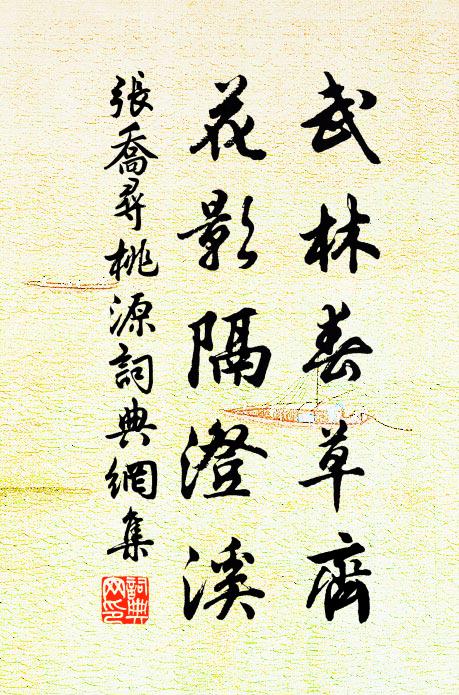 武林春草齊
花影隔澄溪
張喬尋桃源詞典網集
詞典網印